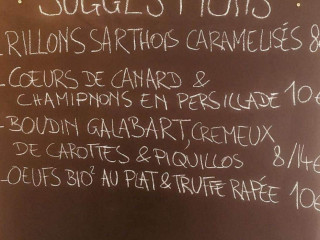 SUGGESTIONS
- RILLONS SARTHOIS CARAMELISÉS 8
- COEURS DE CANARD &
CHAMIPNONS EN PERSILLADE 10€
- BOUDIN GALABART, CREMEUX
DE CAROTTES & PIQUILLOS 8/14€
- OEUFS BIO² AU PLAT & TRUFFE RAPÉE 10€